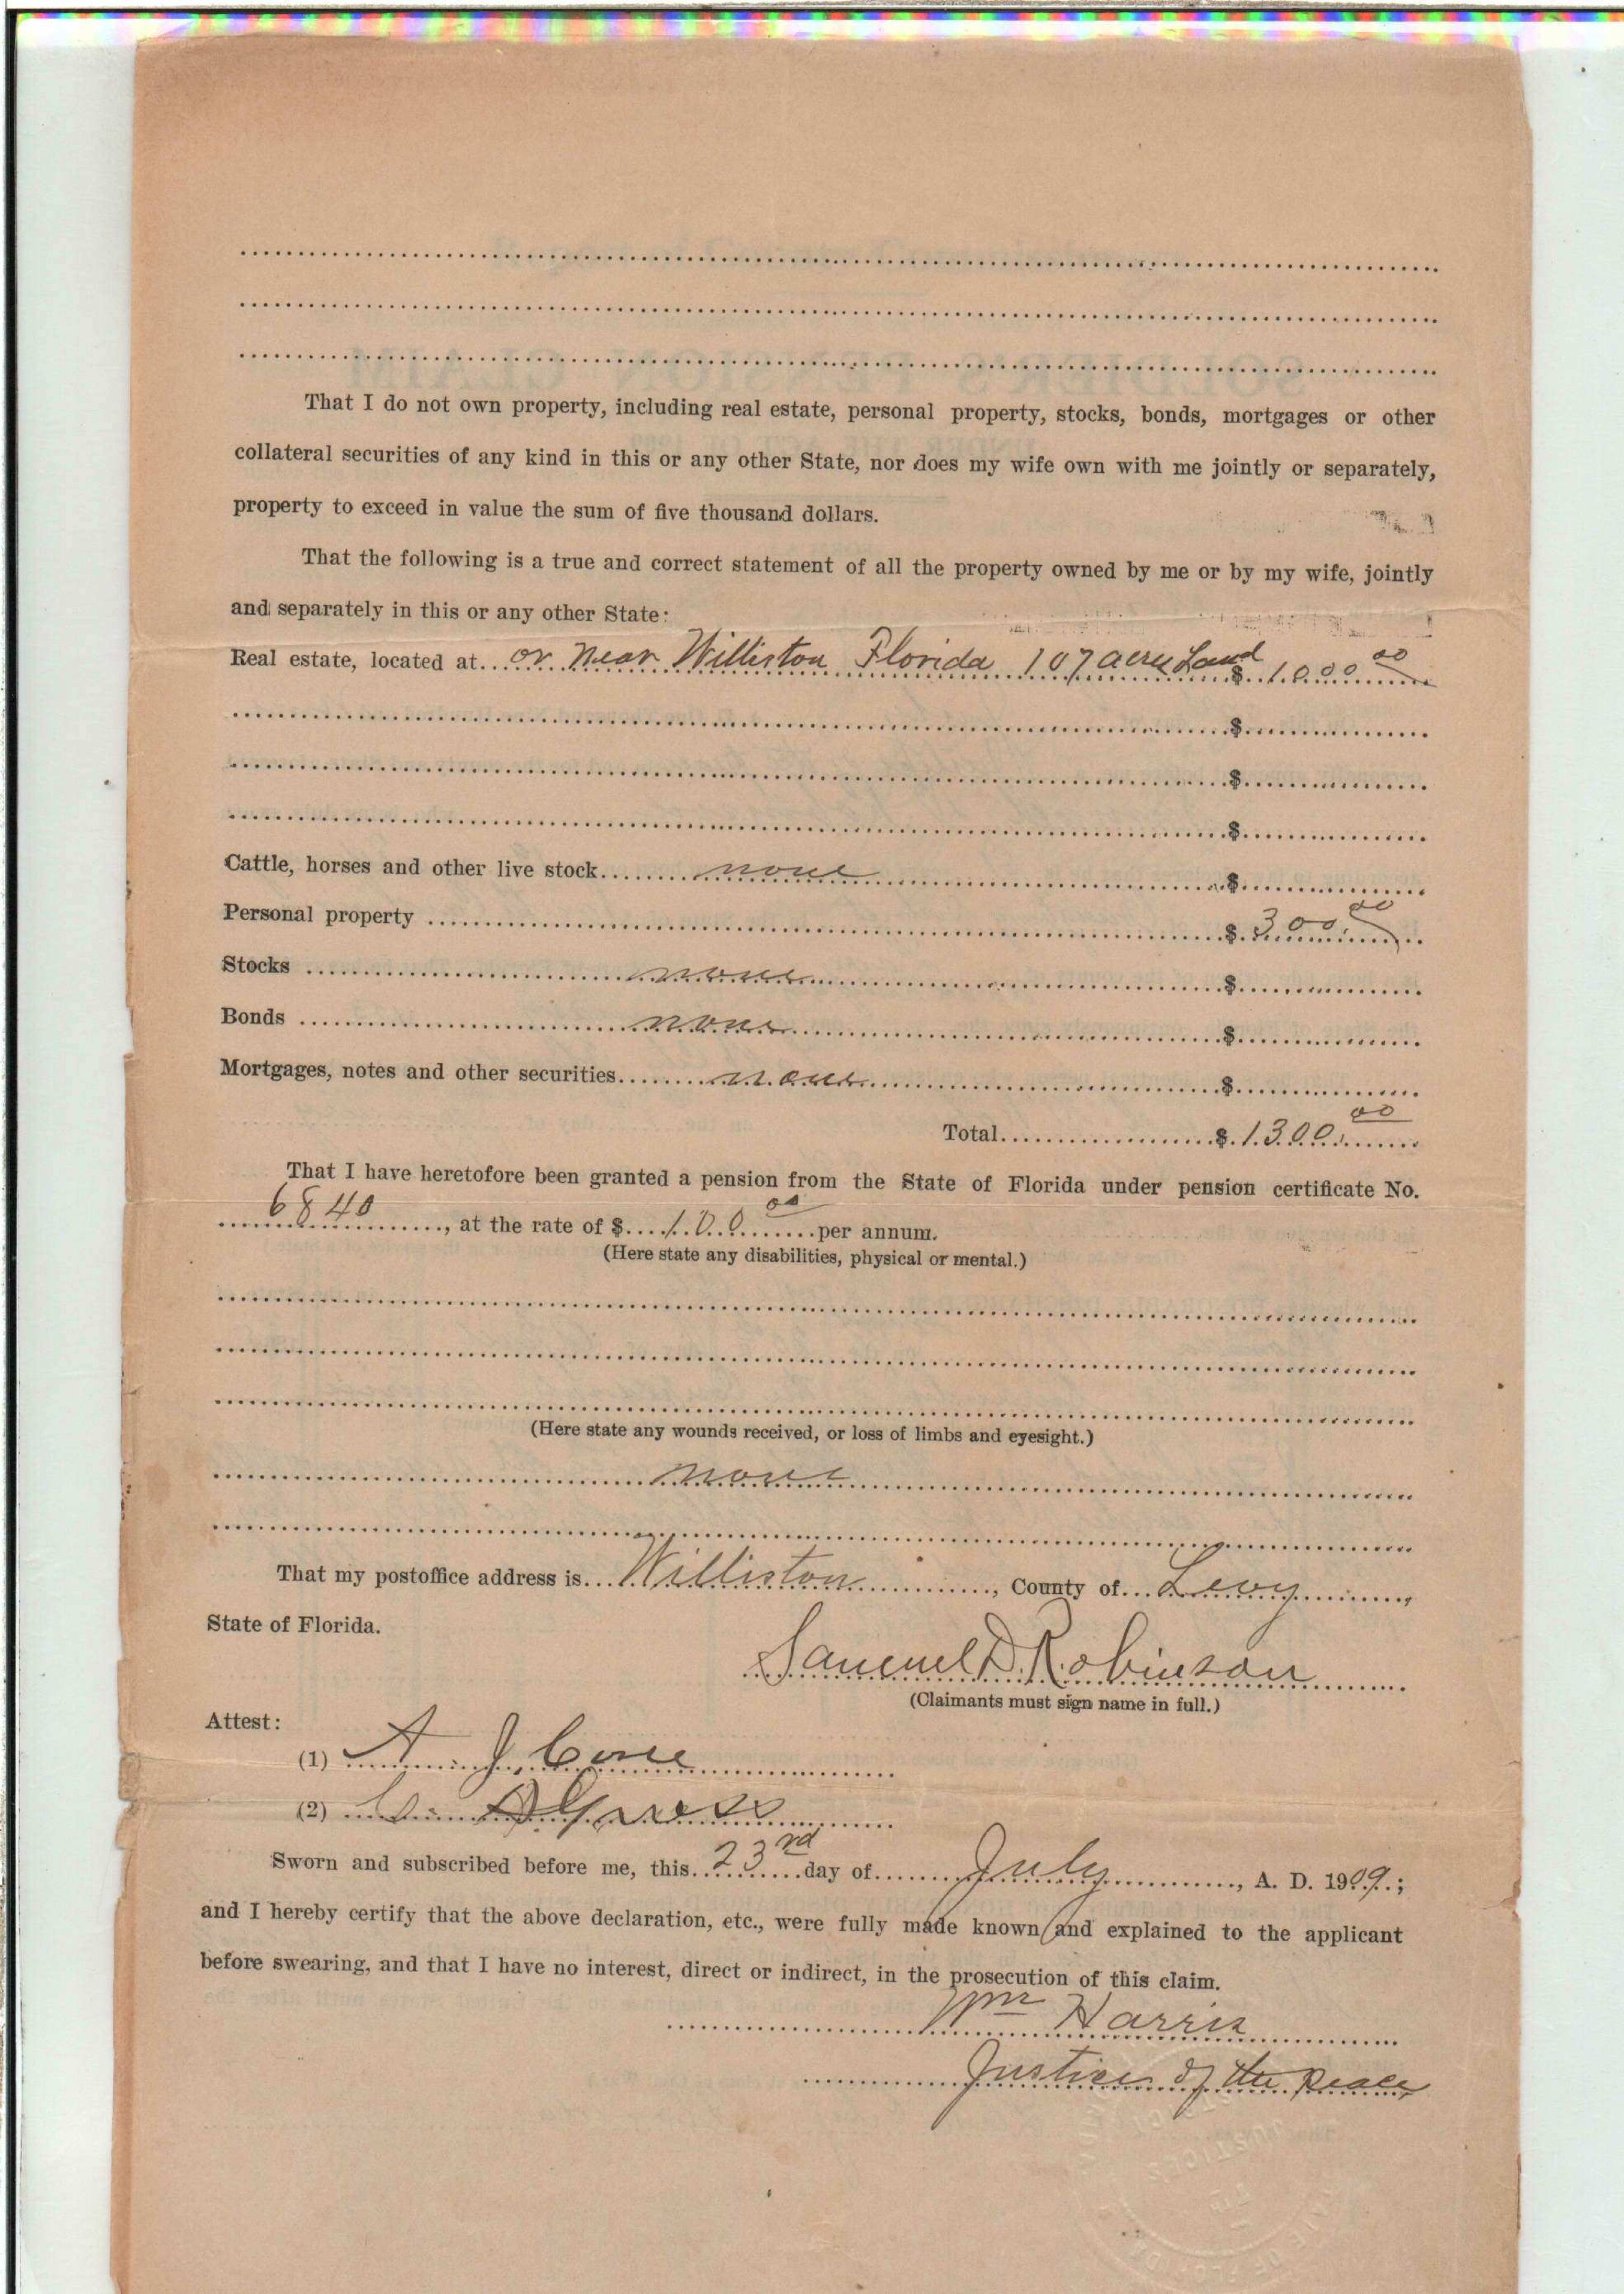 That I do not own property, including real estate, personal property, stocks, bonds, mortgages or other
collateral securities of any kind in this or any other State, nor does my wife own with me jointly or separately,
property to exceed in value the sum of five thousand dollars.
That the following is a true and correct statement of all the property owned by me or by my wife, jointly
and separately in this or any other State:
Real estate, located at or near Williston Florida 107 acres Land $ 1000 00
$
$
$
Cattle, horses and other live stock none $
Personal property $ 300 00
Stocks none $
Bonds none $
Mortgages, notes and other securities none $
Total $ 1300 00
That I have heretofore been granted a pension from the State of Florida under pension certificate No.
6840, at the rate of $ 100 00 per annum.
(Here state any disabilities, physical or mental.)
(Here state any wounds received, or loss of limbs and eyesight.)
none
That my postoffice address is Williston, County of Levy,
State of Florida.
Samuel D. Robinson
(Claimants must sign name in full.)
Attest:
(1) A. J. Cone
(2)
Sworn and subscribed before me, this 23rd day of July, A. D. 1909;
and I hereby certify that the above declaration, etc., were fully made known and explained to the applicant
before swearing, and that I have no interest, direct or indirect, in the prosecution of this claim.
Wm Harris
Justice of the peace